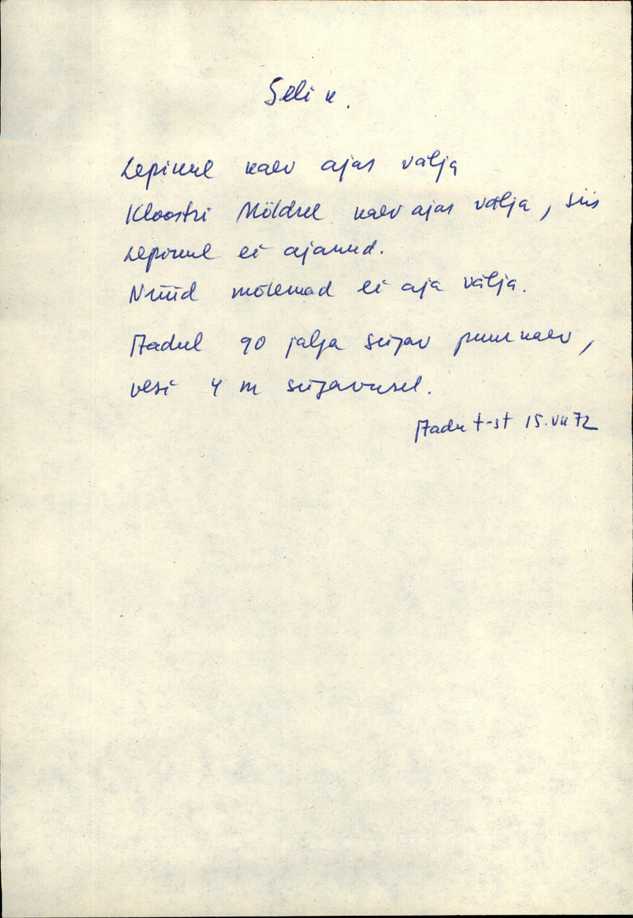 Seli k.
Lepikul kaev ajas välja
Kloostri Möldril kaev ajas välja, siis
Lepikul ei ajanud.
Nüüd mõlemad ei aja välja.
Aadul 90 jalja sügav puurkaev,
vesi 4 m sügavusel.
Aadu t-st 15.VII 72